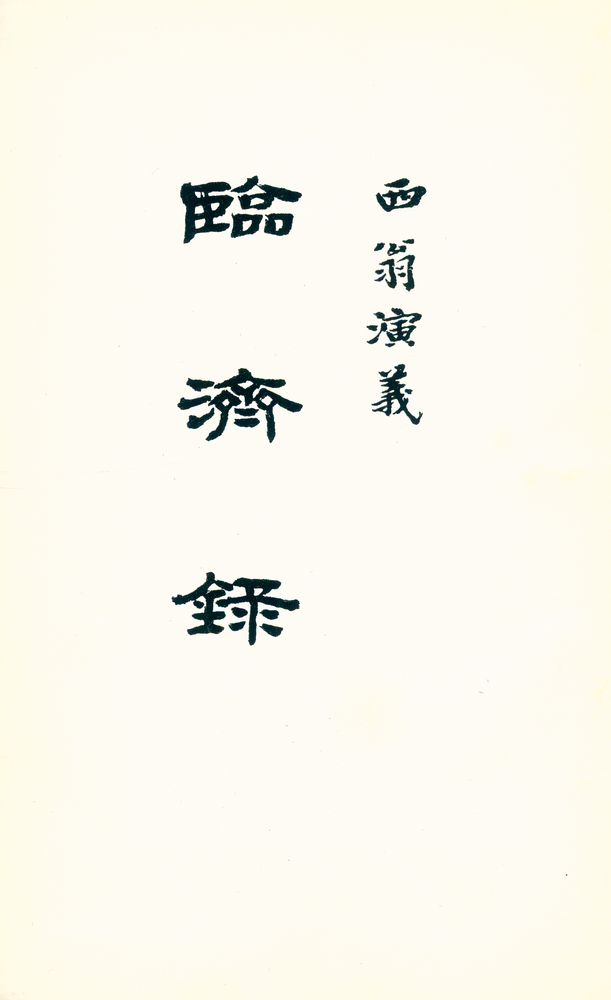 西翁演義
臨濟錄